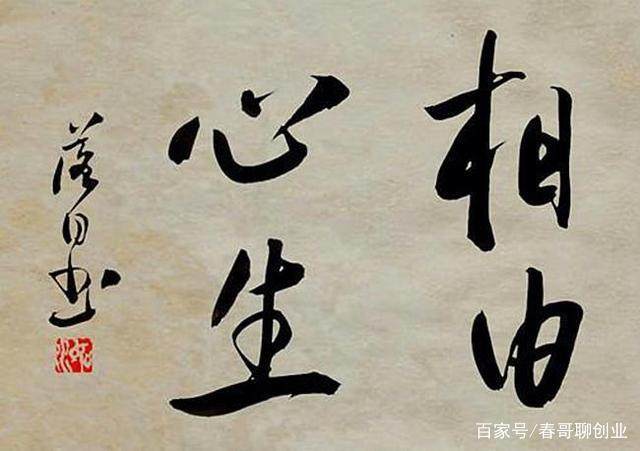 相由
心生
书
百家号/春哥聊创业